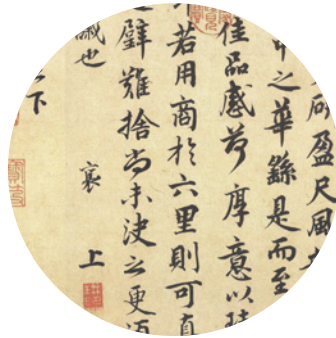 盈尺風
之華繇是而至
佳品感荷厚意以
若用商於六里則可
璧難捨尚未決之更
也　襄　上
下